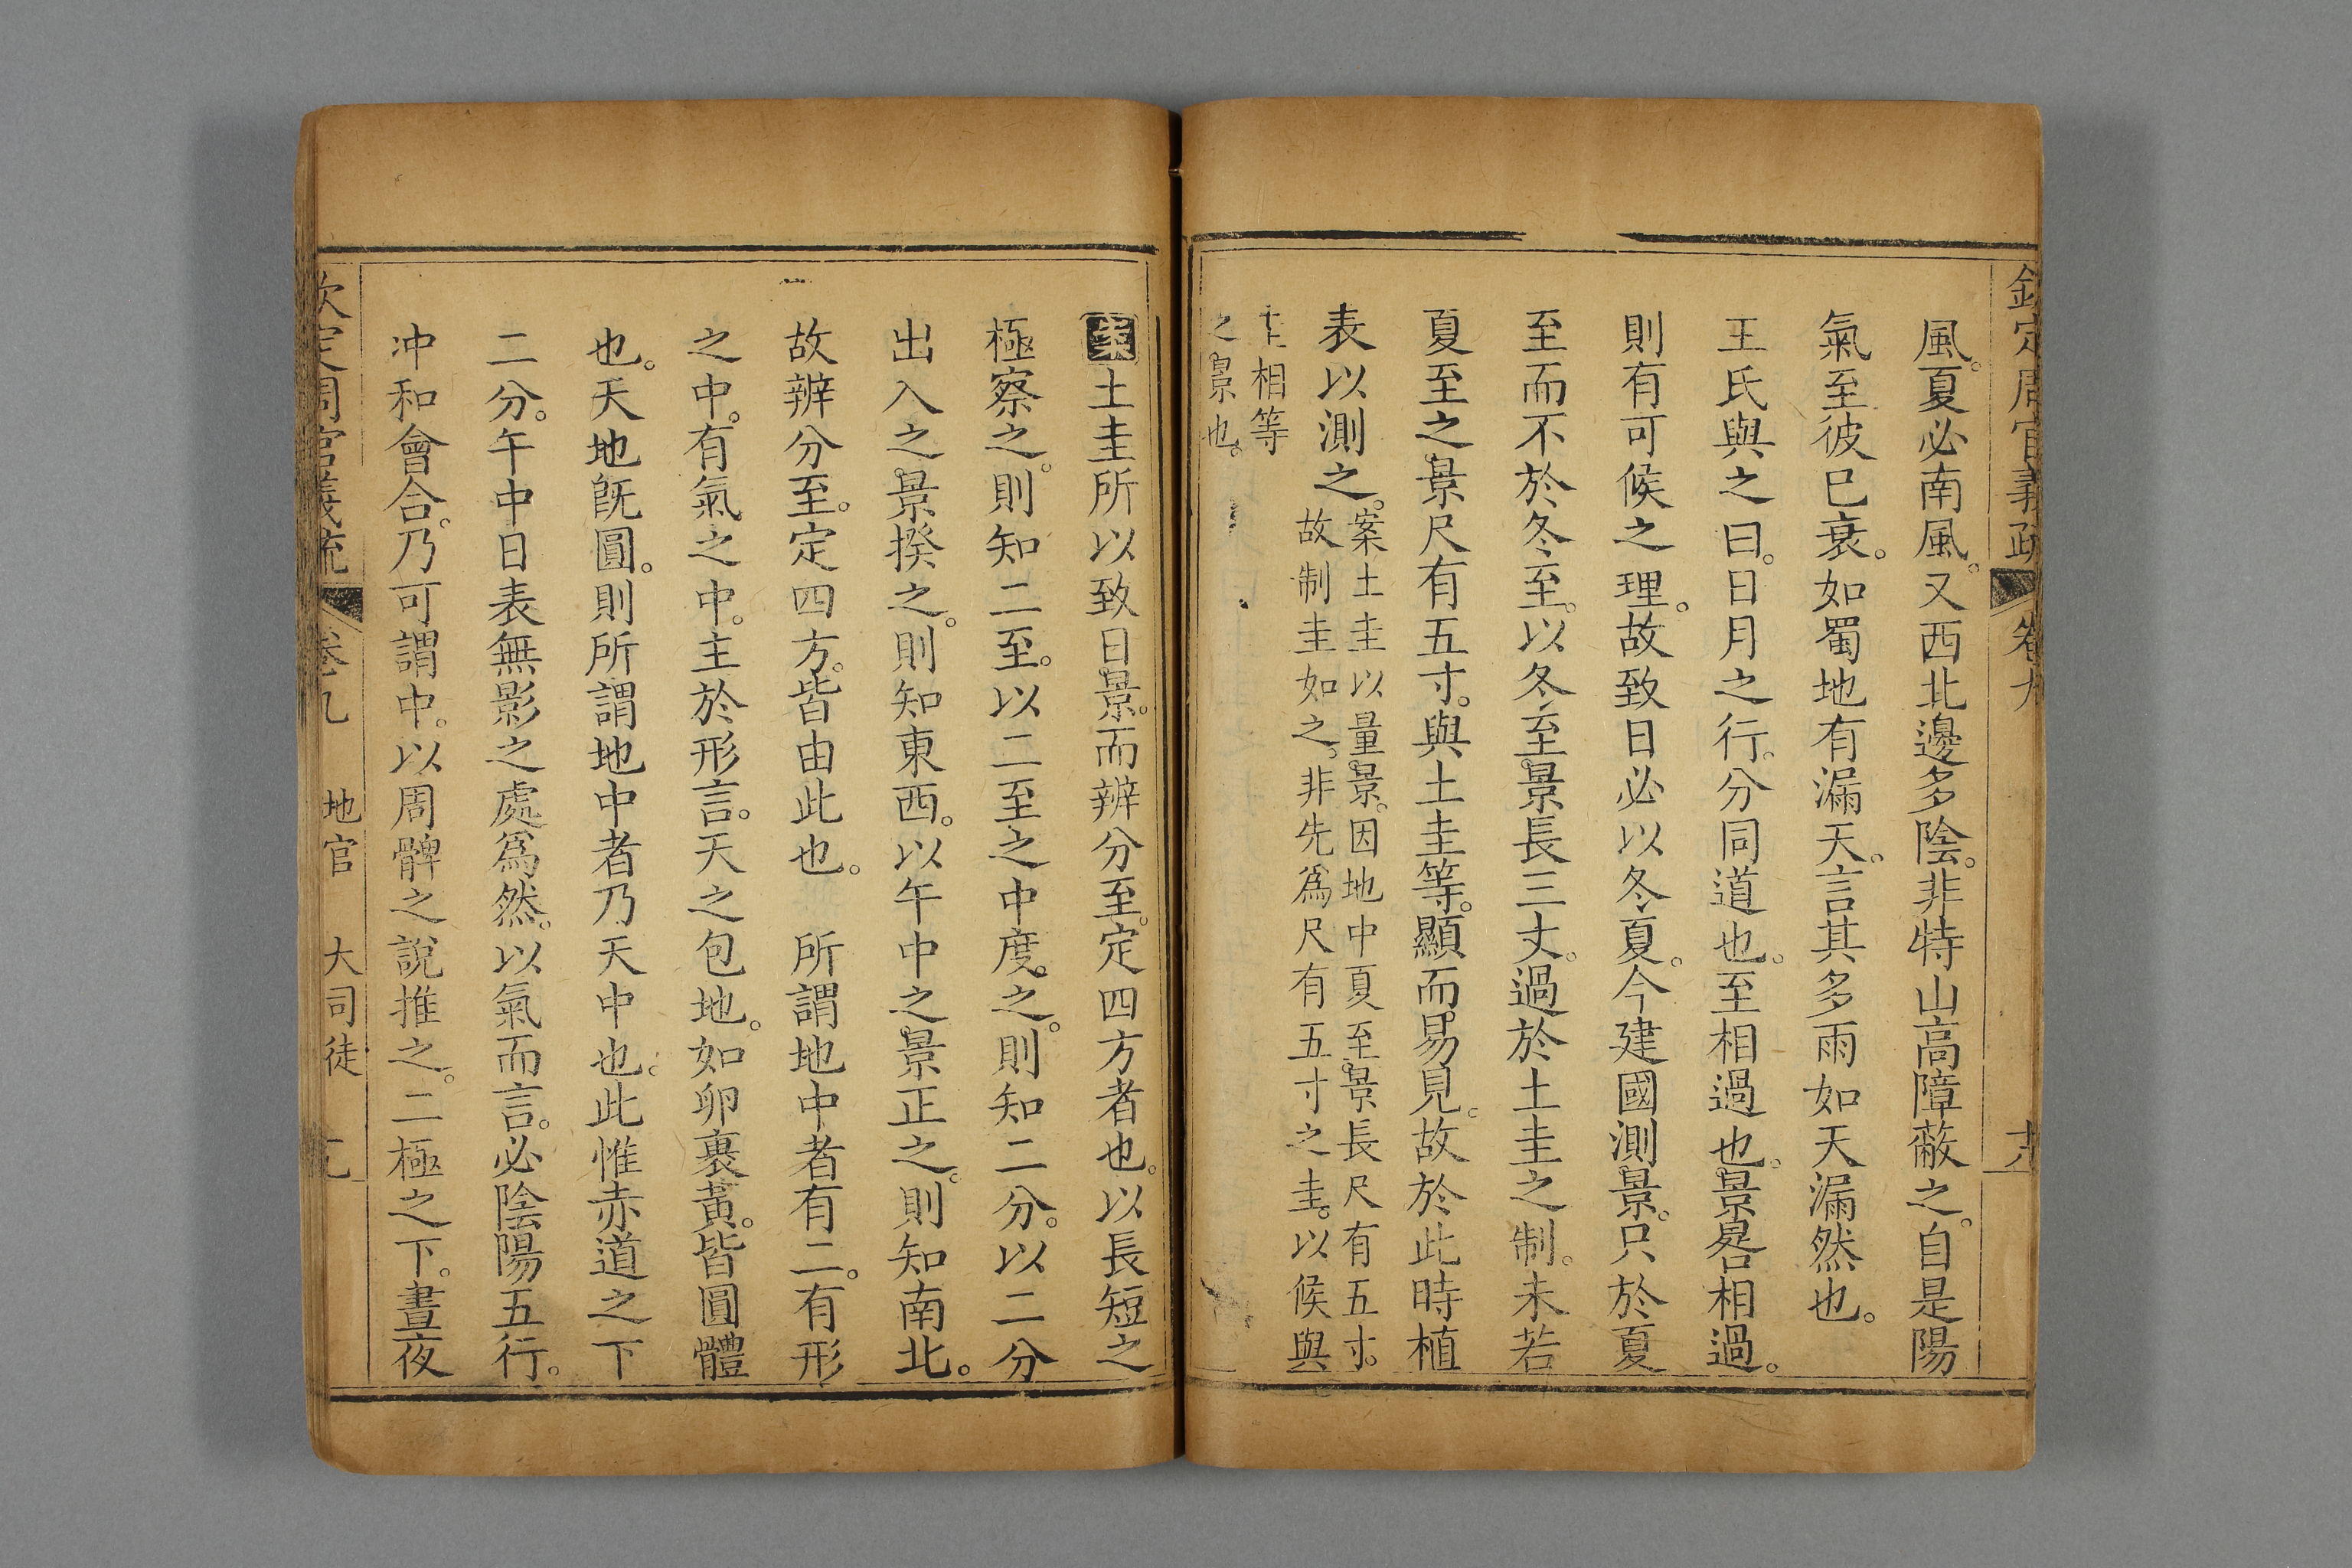 欽定周官義疏 卷九 十八
風。夏必南風。又西北邊多陰。非特山高障蔽之。自是陽
氣至彼已衰。如蜀地有漏天。言其多雨如天漏然也。
王氏與之曰。日月之行。分同道也。至相過也。景晷相過。
則有可候之理。故致日必以冬夏。今建國測景。只於夏
至而不於冬至。以冬至景長三丈。過於土圭之制。未若
夏至之景尺有五寸。與土圭等。顯而易見。故於此時植
表以測之。
案土圭以量景。因地中夏至景長尺有五寸。
故制圭如之。非先為尺有五寸之圭。以候與
圭相等
之景也。
案土圭所以致日景。而辨分至。定四方者也。以長短之
極察之。則知二至。以二至之中度。之。則知二分。以二分
出入之景揆之。則知東西。以午中之景正之。則知南北。
故辨分至。定四方。皆由此也。 所謂地中者有二。有形
之中。有氣之中。主於形言。天之包地。如卵裹黃。皆圓體
也。天地旣圓。則所謂地中者乃天中也。此惟赤道之下
二分。午中日表無影之處爲然。以氣而言。必陰陽五行。
冲和會合。乃可謂中。以周髀之說推之。二極之下。晝夜
欽定周官義疏 卷九 地官 大司徒